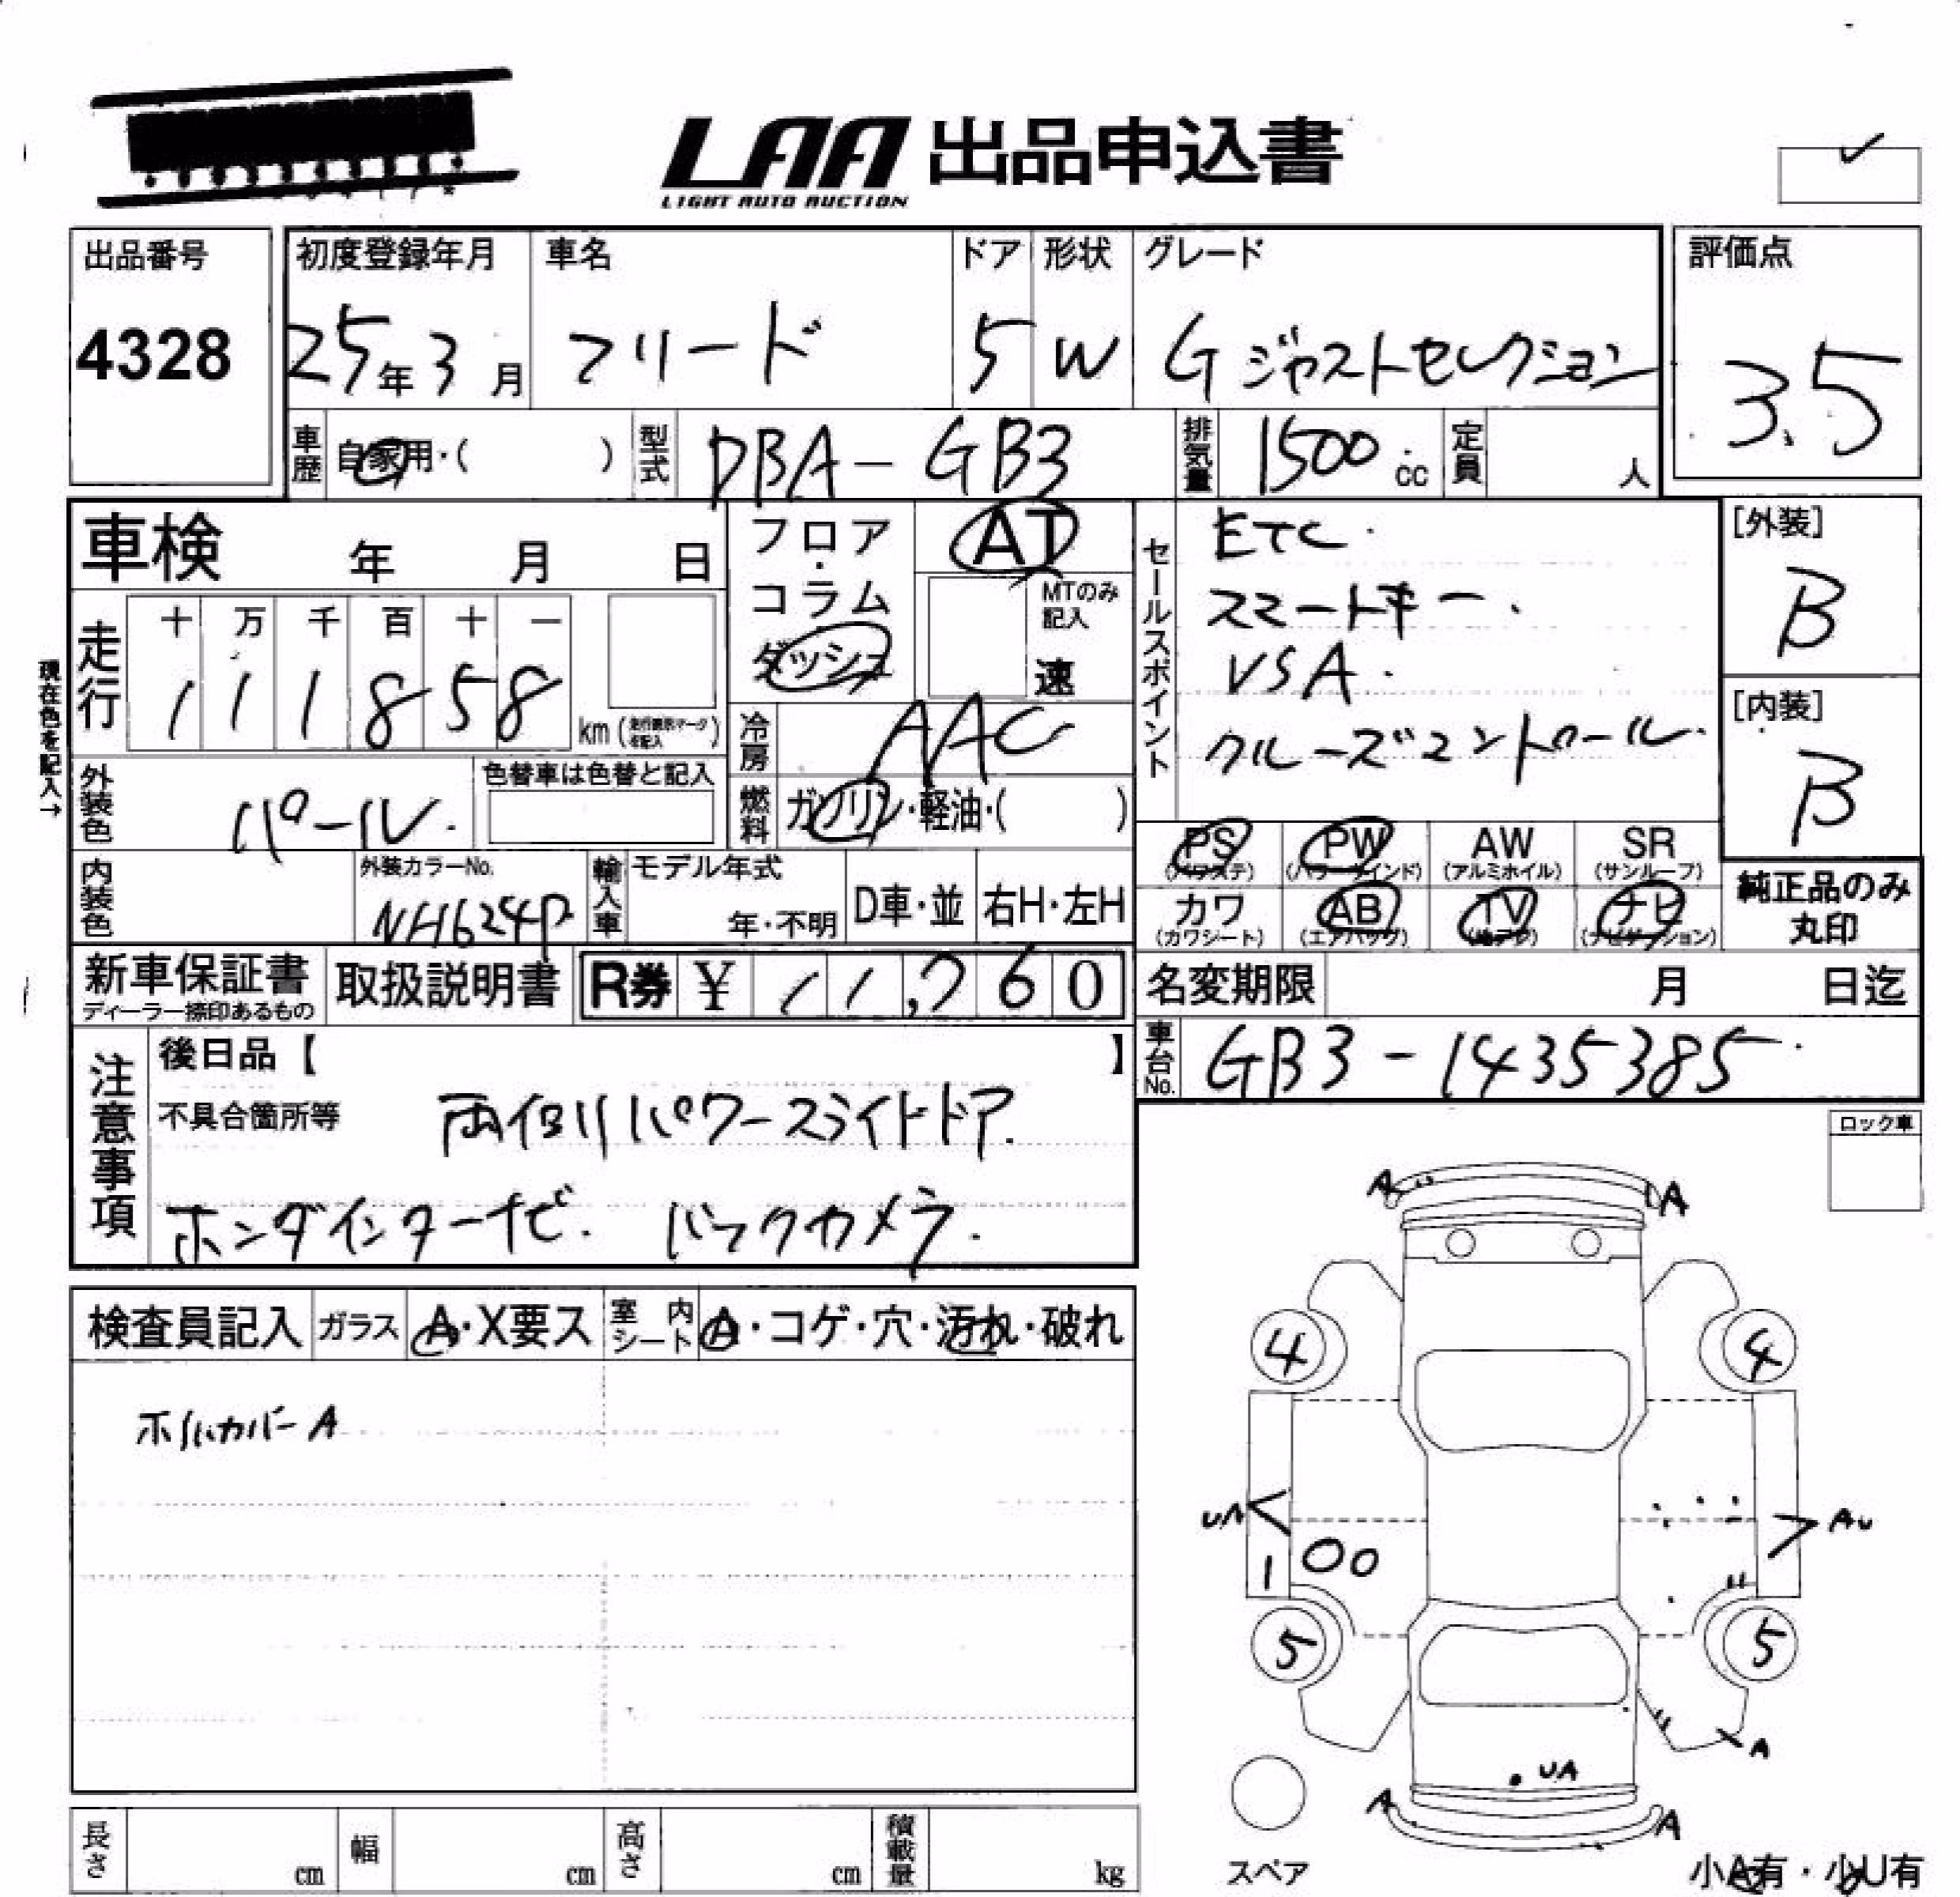 LAA 出品申込書
LIGHT AUTO AUCTION
出品番号
4328
初度登録年月
25年3月
車名
フリード
ドア
5
形状
W
グレード
G ジャストセレクション
評価点
3.5
車歴
自家用・( )
型式
DBA-GB3
排気量
1500cc
定員
人
車検 年 月 日
現在色を記入→
走行
十 万 千 百 十 一
1 1 1 8 5 8
km
フロア・
コラム
ダッシュ
AT
MTのみ
記入
速
セールスポイント
ETC.
スマートキー.
VSA.
クルーズコントロール.
[外装]
B
[内装]
B
外装色
パール.
色替車は色替と記入
冷房
AAC
燃料
ガソリン・軽油・( )
内装色
外装カラーNo.
NH624P
輸入車
モデル年式
年・不明
D車・並
右H・左H
PS
(パワステ)
PW
(パワーウインド)
AW
(アルミホイル)
SR
(サンルーフ)
カワ
(カワシート)
AB
(エアバッグ)
TV
(地デジ)
ナビ
(ナビゲーション)
純正品のみ
丸印
新車保証書
ディーラー捺印あるもの
取扱説明書
R券 ¥ 11,260
名変期限 月 日迄
車台No.
GB3-1435385.
注意事項
後日品【 】
不具合箇所等 両側パワースライドドア.
ホンダインターナビ. バックカメラ.
ロック車
検査員記入
ガラス
A・X要ス
室内シート
A・コゲ・穴・汚れ・破れ
ホイルカバーA
A A
4 4
UA AU
1
5 5
A
UA
A A
スペア
小A有・小U有
長さ cm
幅 cm
高さ cm
積載量 kg